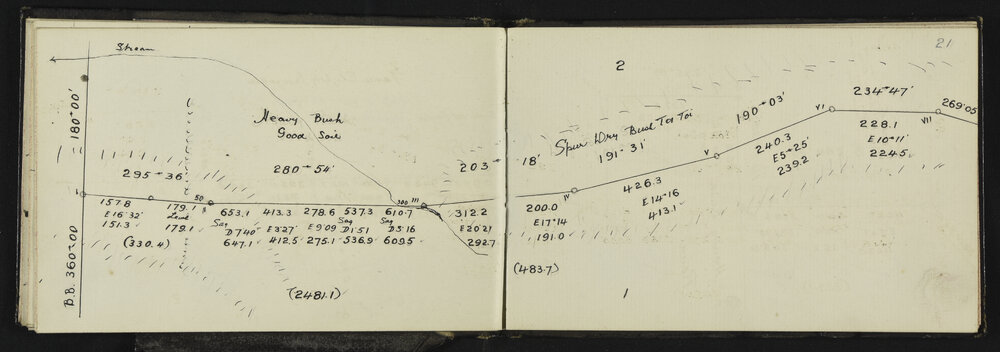 21
Stream
2
180°00'
234°47'
269°05
Heavy Bush
Good Soil
Spur Dry Bush Toi Toi
190°03'
VI
VII
228.1
E10°11'
224.5
295°36'
280°54'
203° 18'
191°31'
V
240.3
E5°25'
239.2
I
50
II
300 III
IV
426.3
E14°16
413.1
157.8
E16°32'
151.3
179.1
Level
179.1
Sag
653.1
D7°40'
647.1
413.3
E3°27'
412.5
278.6
E9°09
275.1
537.3
Sag
D1°51
536.9
610.7
Sag
D3°16
609.5
312.2
E20°21
292.7
200.0
E17°14
191.0
(330.4)
(2481.1)
(483.7)
B.B. 360°00
1